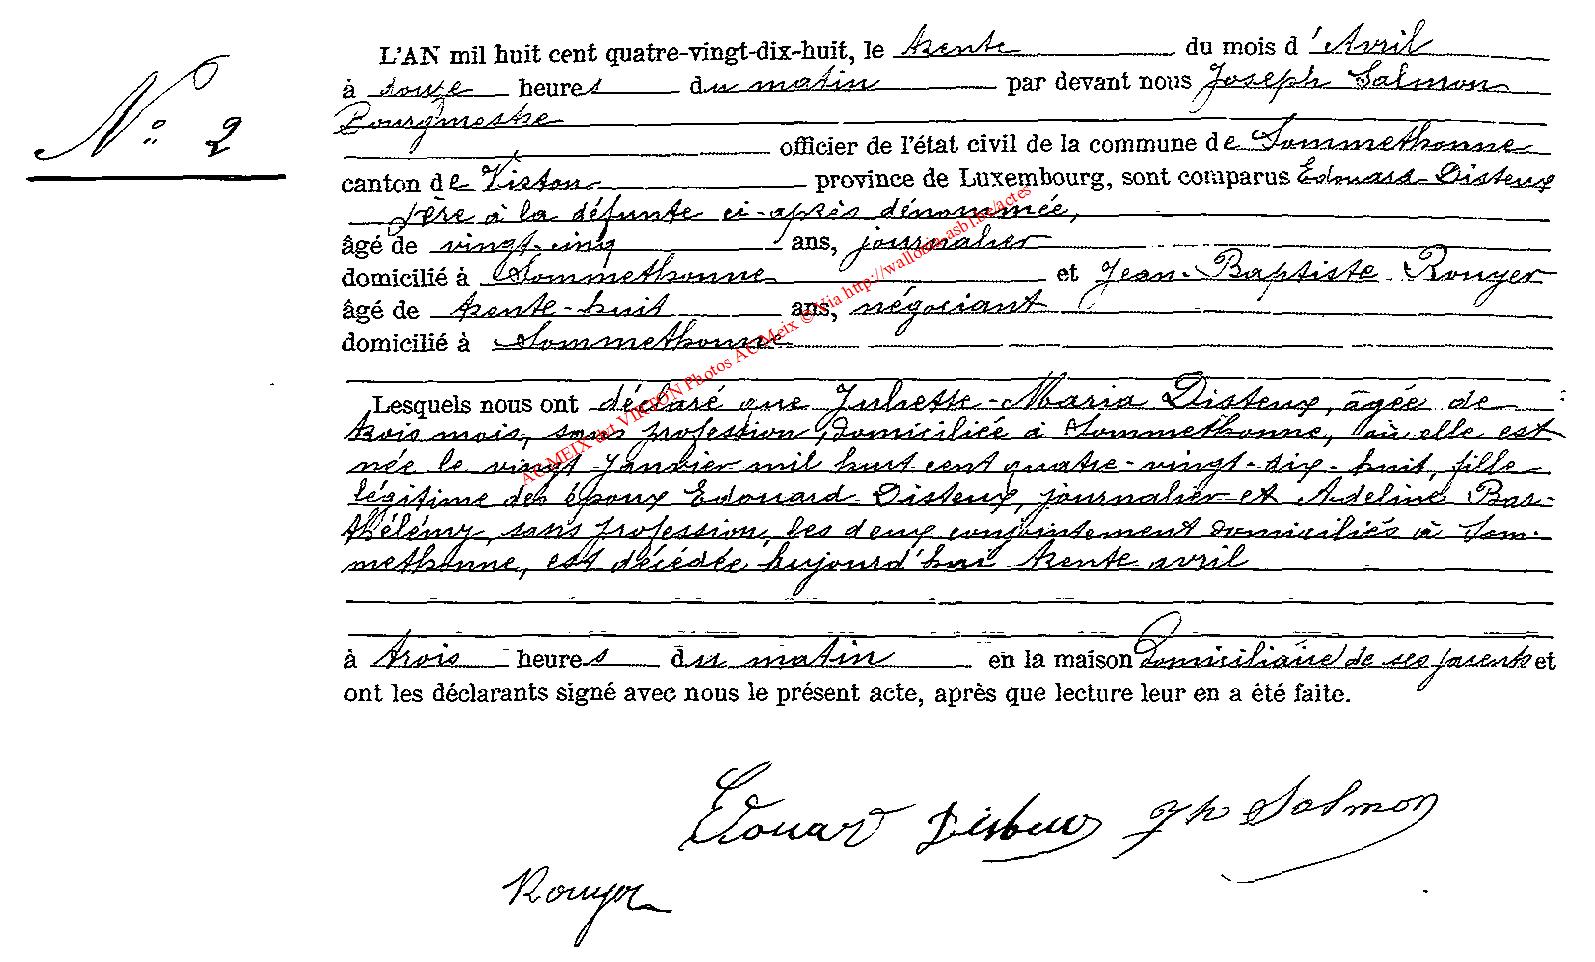 L'AN mil huit cent quatre-vingt-dix-huit, le trente du mois d'Avril
N° 2
à douze heures du matin par devant nous Joseph Salmon
Bourgmestre
officier de l'état civil de la commune de Sommethonne
canton de Virton province de Luxembourg, sont comparus Edouard Disteux
Père à la défunte ci-après dénommée,
âgé de vingt-cinq ans, journalier
domicilié à Sommethonne et Jean-Baptiste Rouyer
âgé de trente-huit ans, négociant
domicilié à Sommethonne
Lesquels nous ont déclaré que Juliette-Maria Disteux, âgée de
trois mois, sans profession, domiciliée à Sommethonne, où elle est
née le vingt Janvier mil huit cent quatre-vingt-dix-huit, fille
légitime des époux Edouard Disteux, journalier et Adeline Bar-
thélémy, sans profession, les deux conjointement domiciliés à Som-
methonne, est décédée aujourd'hui trente avril
à trois heures du matin en la maison domiciliaire de ses parents et
ont les déclarants signé avec nous le présent acte, après que lecture leur en a été faite.
Edouard Disteux Jh Salmon
Rouyer
AC MEIX dvt VIRTON Photos AC Meix © Via http://wallonia-asbl.be/actes